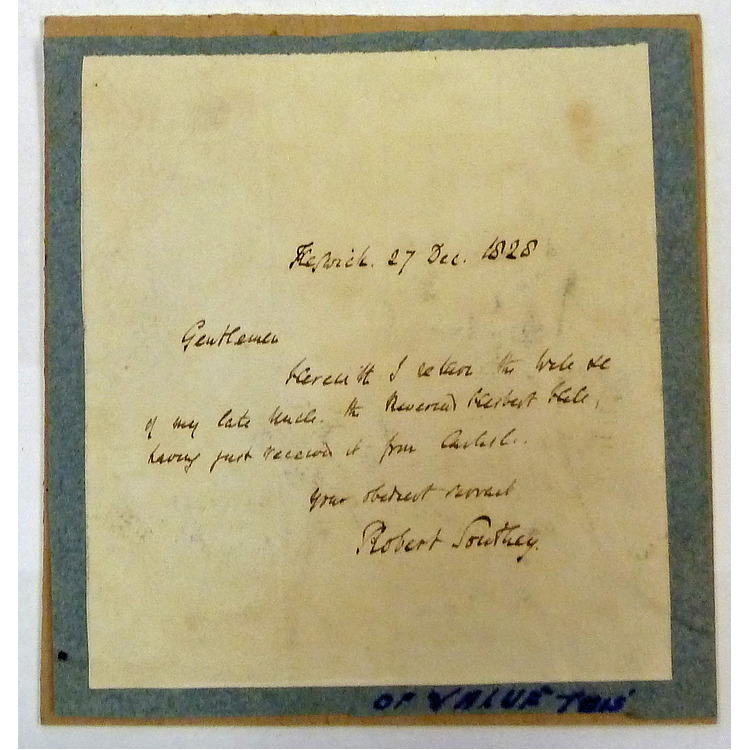 Keswick. 27 Dec. 1828
Gentlemen
Herewith I return the Will &c
of my late Uncle. the Reverend Herbert Hill,
having just received it from Carlisle.
Your obedient servant
Robert Southey.
OF VALUE THIS